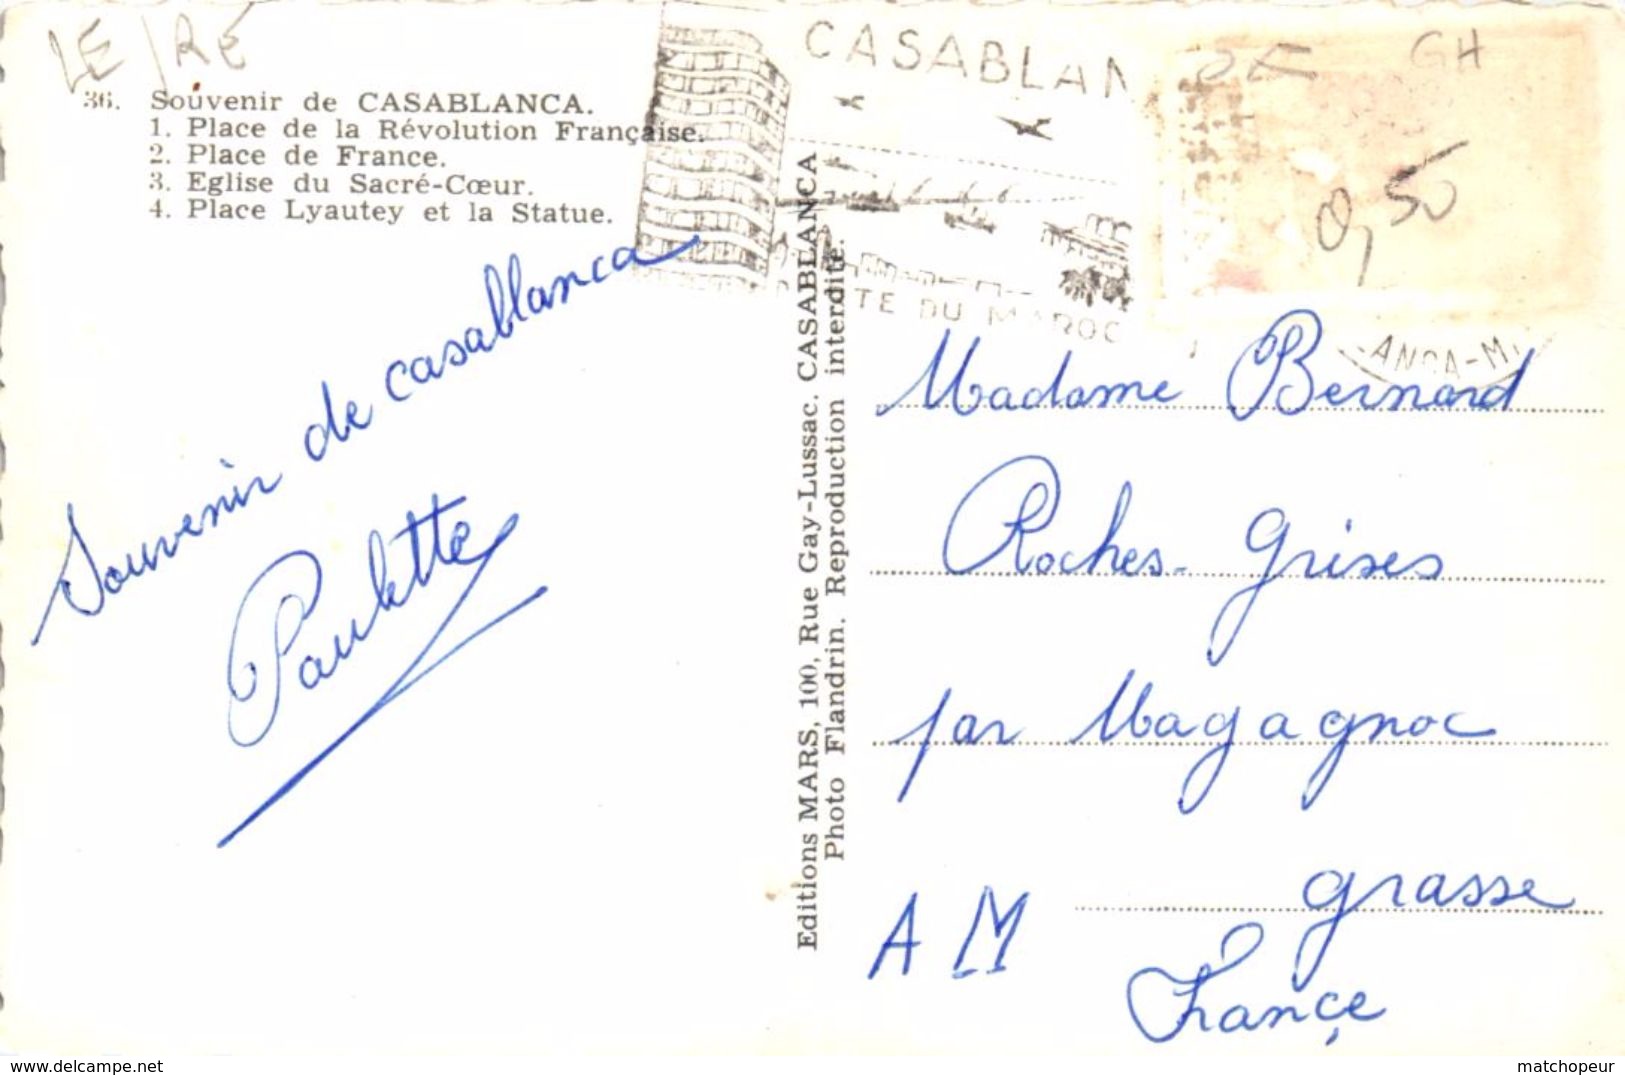 LE/RE
36. Souvenir de CASABLANCA.
1. Place de la Révolution Française.
2. Place de France.
3. Eglise du Sacré-Cœur.
4. Place Lyautey et la Statue.
CASABLAN
TE DU MAROC
GH
0,50
ANCA-M
Souvenir de casablanca
Paulette
Editions MARS, 100, Rue Gay-Lussac. CASABLANCA
Photo Flandrin. Reproduction interdite.
Madame Bernard
Roches-Grises
par Magagnoc
Grasse
A M
France
delcampe.net
matchopeur